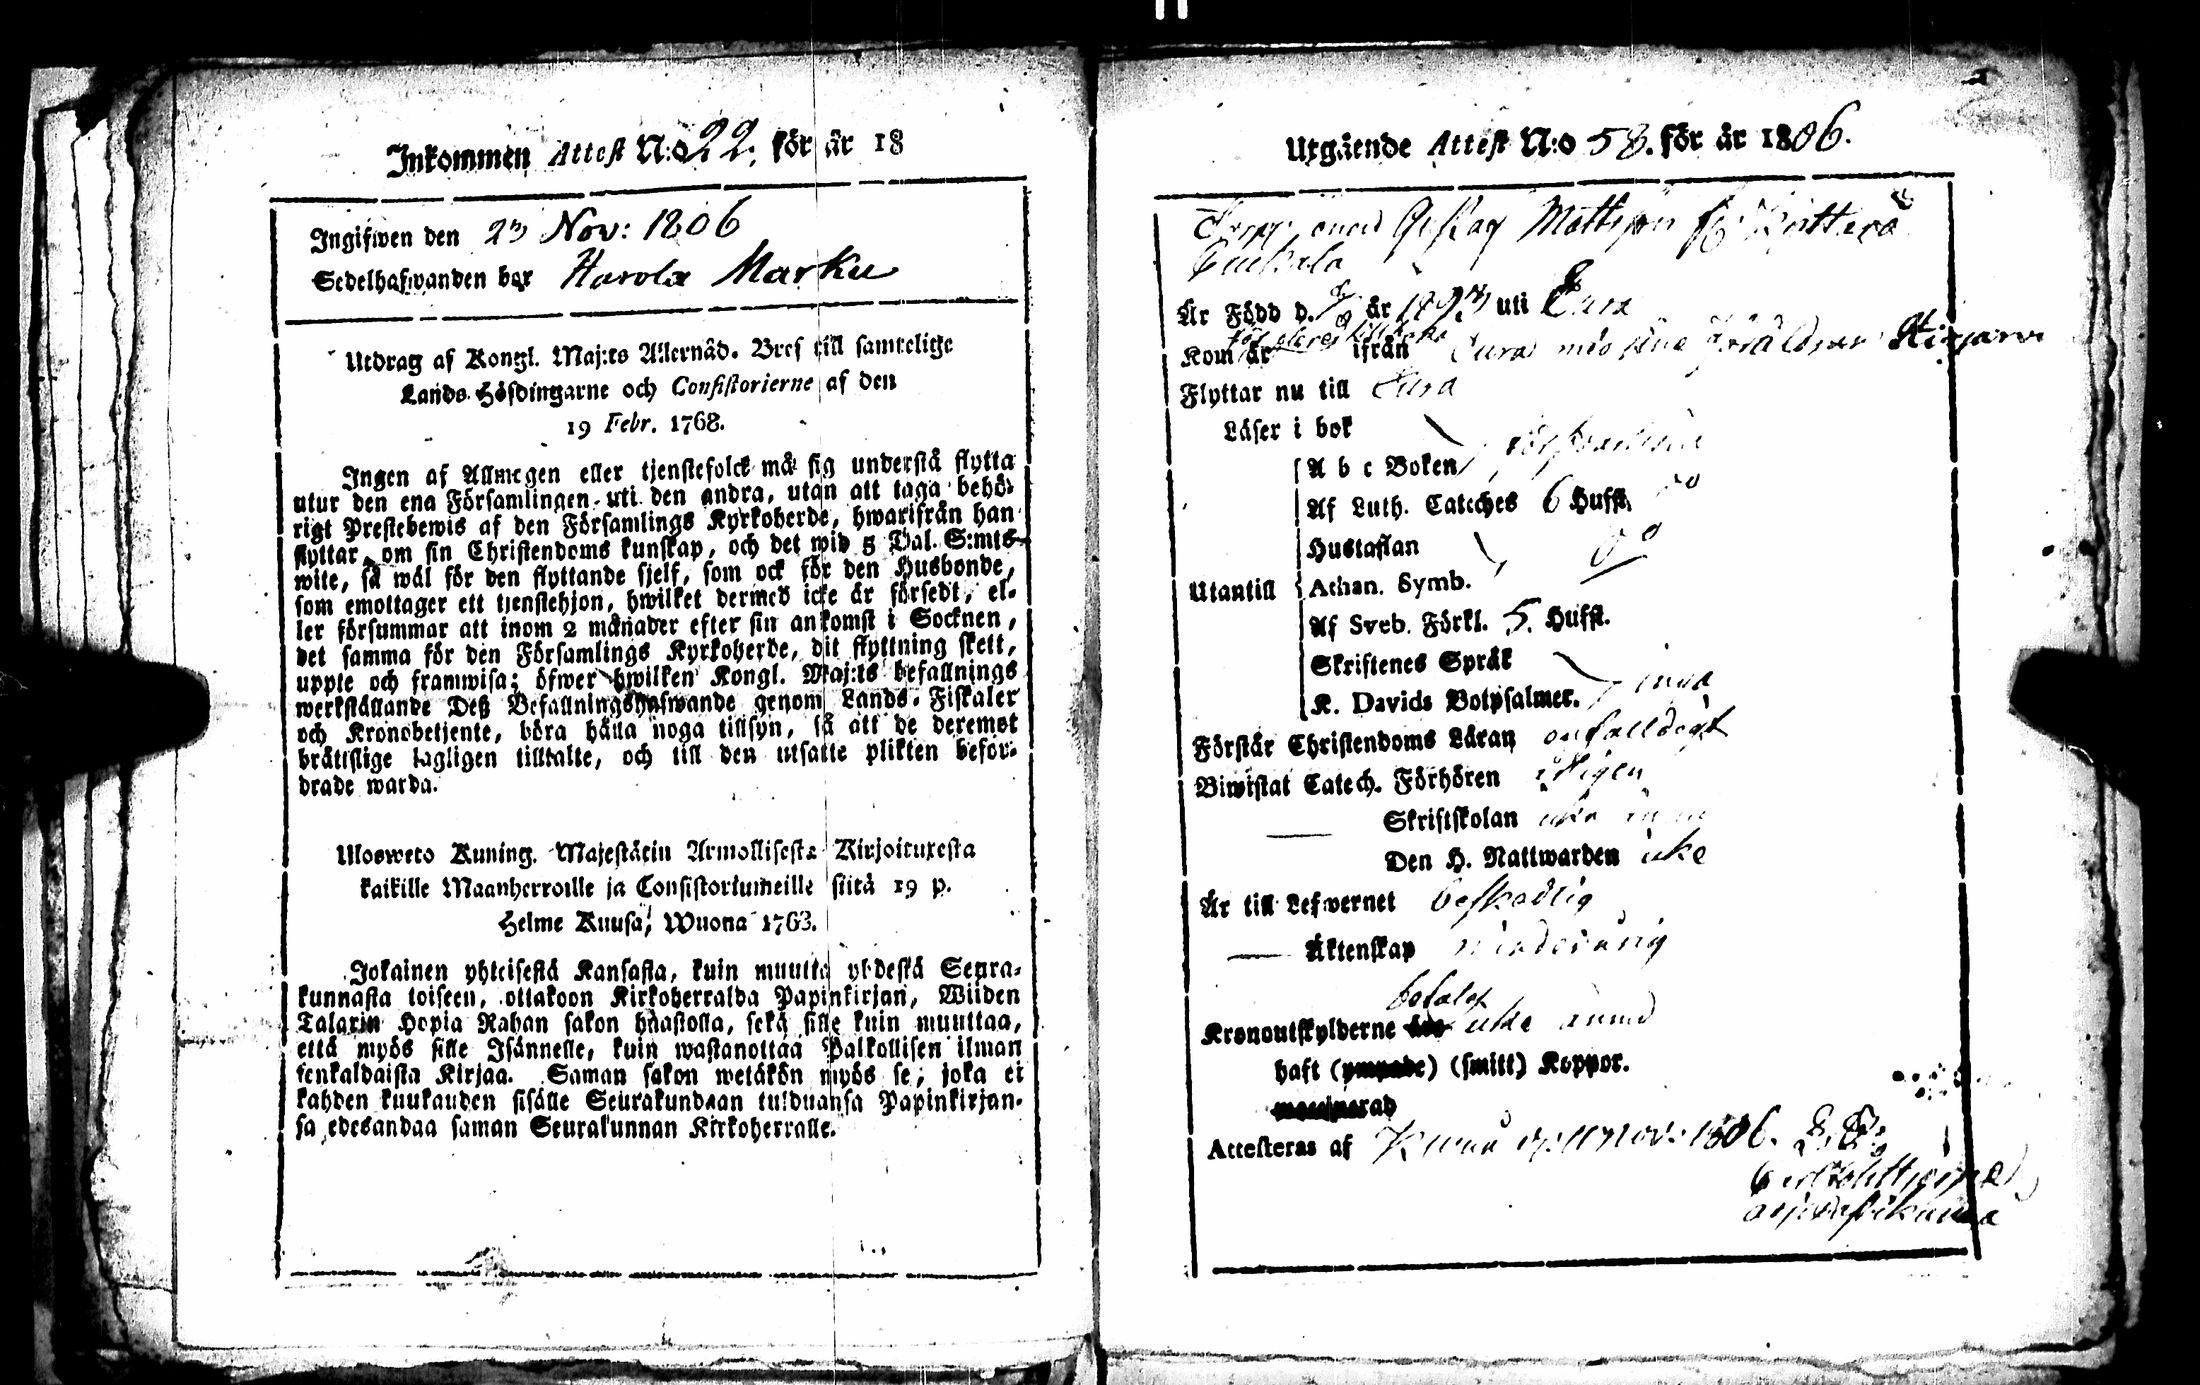 Inkommen Attest N:o 22. för år 18
Ingifwen den 23 Nov: 1806
Sedelhafwanden bor Harola Marku
Utdrag af Kongl. Maj:ts Allernåd. Bref till samtelige
Lands-Höfdingarne och Consistorierne af den
19 Febr. 1768.
Ingen af Allmogen eller tjenstefolck må sig understå flytta
utur den ena Församlingen uti den andra, utan att taga behö-
rigt Prestebewis af den Församlings Kyrkoherde, hwarifrån han
flyttar, om sin Christendoms kunskap, och det wid 5 Dal. S:mts
wite, så wäl för den flyttande sjelf, som ock för den Husbonde,
som emottager ett tjenstehjon, hwilket dermed icke är försedt, el-
ler försummar att inom 2 månader efter sin ankomst i Socknen,
det samma för den Församlings Kyrkoherde, dit flyttning skett,
uppte och framwisa; öfwer hwilken Kongl. Maj:ts befallnings
werkställande Deß Befallningshafwande genom Lands-Fiskaler
och Kronobetjente, böra hålla noga tillsyn, så att de deremot
bråttslige lagligen tilltalte, och till den utsatte plikten befor-
drade warda.
Ulosweto Kuning. Majestätin Armollisesta Kirjoituxesta
kaikille Maanherroille ja Consistoriumeille siitä 19 p.
Helme Kuusa, Wuona 1763.
Jokainen yhteisestä Kansasta, kuin muutta yhdestä Seura-
kunnasta toiseen, ottakoon Kirkoherralda Papinkirjan, Wiiden
Talarin Hopia Rahan sakon haastolla, sekä sille kuin muuttaa,
että myös sille Isännelle, kuin wastanottaa Palkollisen ilman
senkaldaista Kirjaa. Saman sakon wetäkön myös se, joka ei
kahden kuukauden sisälle Seurakundaan tulduansa Papinkirjan-
sa edesandaa saman Seurakunnan Kirkoherralle.
Utgående Attest N:o 58. för år 1806.
Mattsson
Är Född d. år uti Eura
Kom år ifrån Eura med sine Föräldrar
Flyttar nu till Eura
Läser i bok
A b c Boken
Af Luth. Cateches 6 Huffst.
Hustaflan
Utantill Athan. Symb.
Af Sveb. Förkl. 5. Huffst.
Skriftenes Språk
K. Davids Botpsalmer. inga
Förstår Christendoms Läran enfalldigt
Biwistat Catech. Förhören
Skriftskolan
Den H. Nattwarden icke
Är till Lefwernet beskedlig
Äktenskap minderårig
Kronoutskylderne icke ännu
haft (ympade) (smitt) Koppor.
Attesteras af 11 Nov: 1806.